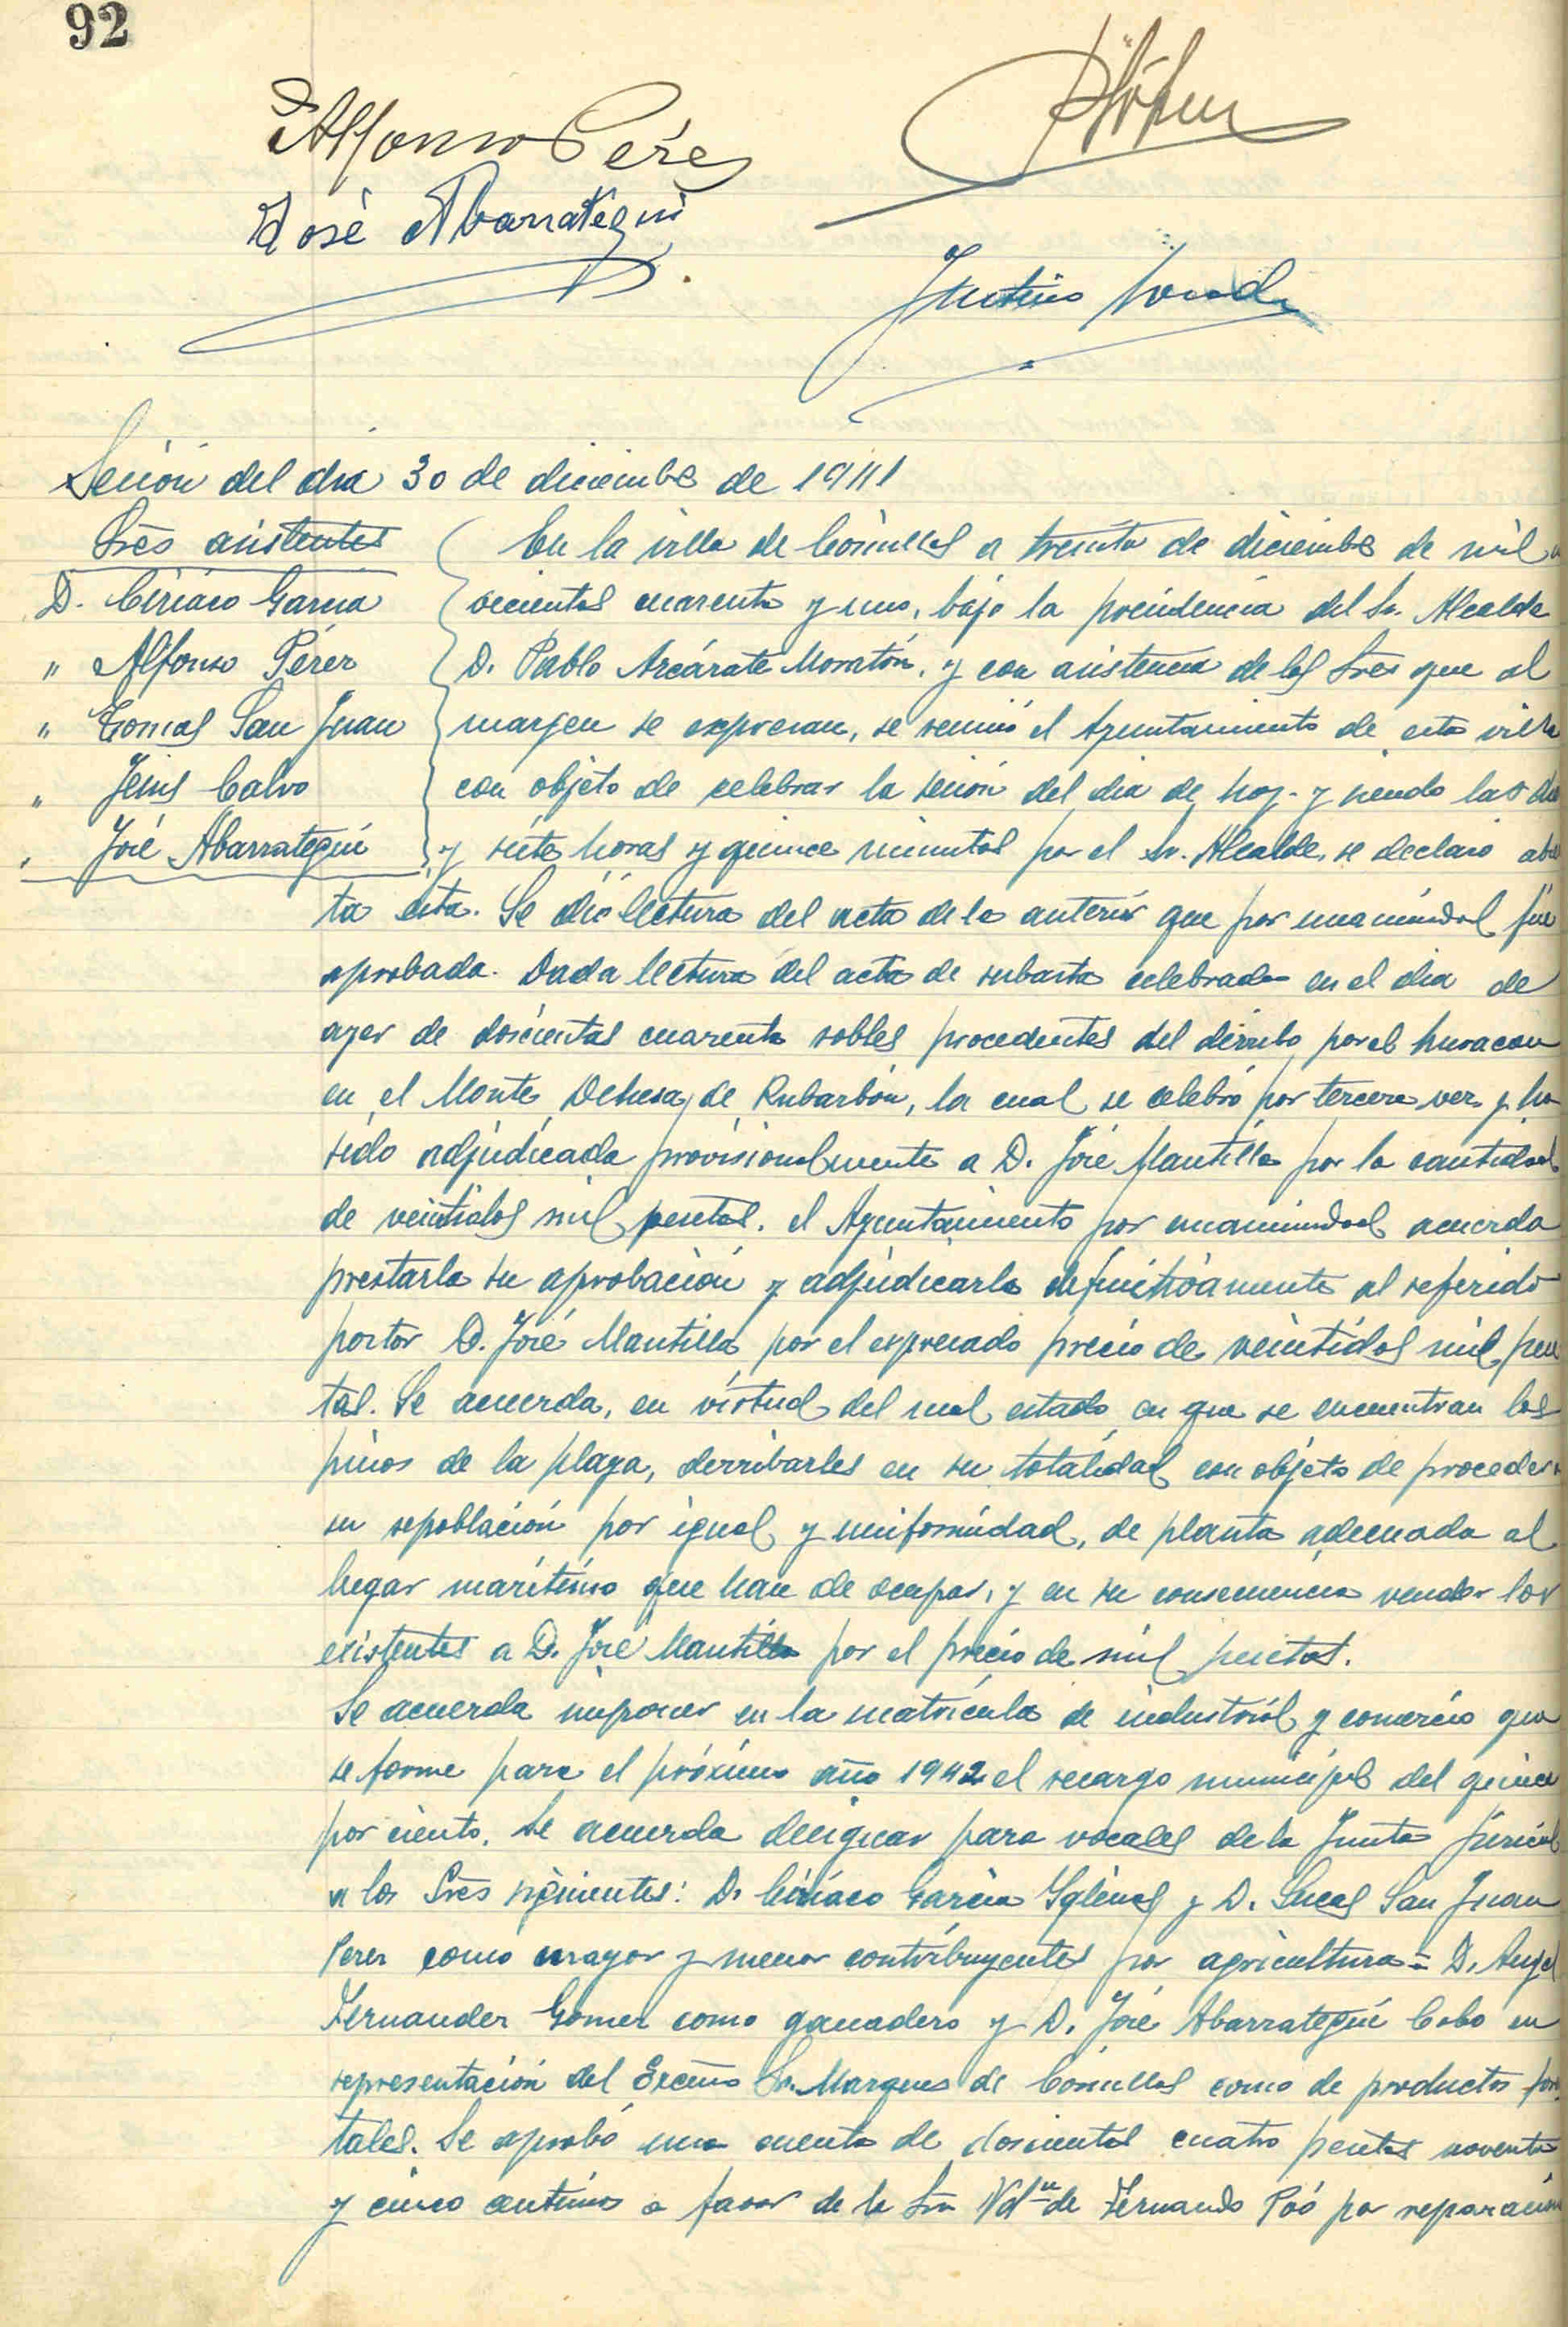 92
Alfonso Pérez
José Abarrategui
Sesión del dia 30 de diciembre de 1941
Sres asistentes
D. Ciriaco Garcia
" Alfonso Pérez
" Tomas San Juan
" Jesus Calvo
" José Abarrategui
En la villa de Comillas a treinta de diciembre de mil no
vecientos cuarenta y uno, bajo la presidencia del Sr. Alcalde
D. Pablo Azcárate Moratón, y con asistencia de los Sres que al
margen se expresan, se reunió el Ayuntamiento de esta villa
con objeto de celebrar la sesión del dia de hoy. y siendo las diez
y siete horas y quince minutos por el Sr. Alcalde, se declaro abier
ta esta. Se dió lectura del acta de la anterior que por unanimidad fué
aprobada. Dada lectura del acta de subasta celebrada en el dia de
ayer de doscientos cuarenta robles procedentes del derribo por el huracan
en el Monte Dehesa de Rubarbón, la cual se celebró por tercera vez y ha
sido adjudicada provisionalmente a D. José Mantilla por la cantidad
de veintidos mil pesetas. el Ayuntamiento por unanimidad acuerda
prestarla su aprobación y adjudicarla definitivamente al referido
portor D. José Mantilla por el expresado precio de veintidos mil pese
tas. Se acuerda, en virtud del mal estado en que se encuentran los
pinos de la playa, derribarles en su totalidad con objeto de proceder a
su repoblación por igual y uniformidad, de planta adecuada al
lugar marítimo que han de ocupar, y en su consecuencia vender los
existentes a D. José Mantilla por el precio de mil pesetas.
Se acuerda imponer en la matrícula de industrial y comercio que
se forme para el próximo año 1942 el recargo municipal del quince
por ciento. Se acuerda designar para vocales de la Junta Pericial
a los Sres siguientes: D. Ciriaco García Iglesias y D. Lucas San Juan
Perez como mayor y menor contribuyentes por agricultura = D. Angel
Fernandez Gomez como ganadero y D. José Abarrategui Cobo en
representación del Excmo Sr. Marques de Comillas como de productos fores
tales. Se aprobó una cuenta de doscientas cuatro pesetas noventa
y cinco centimos a favor de la Sra Vdª de Fernando Poó por reparación